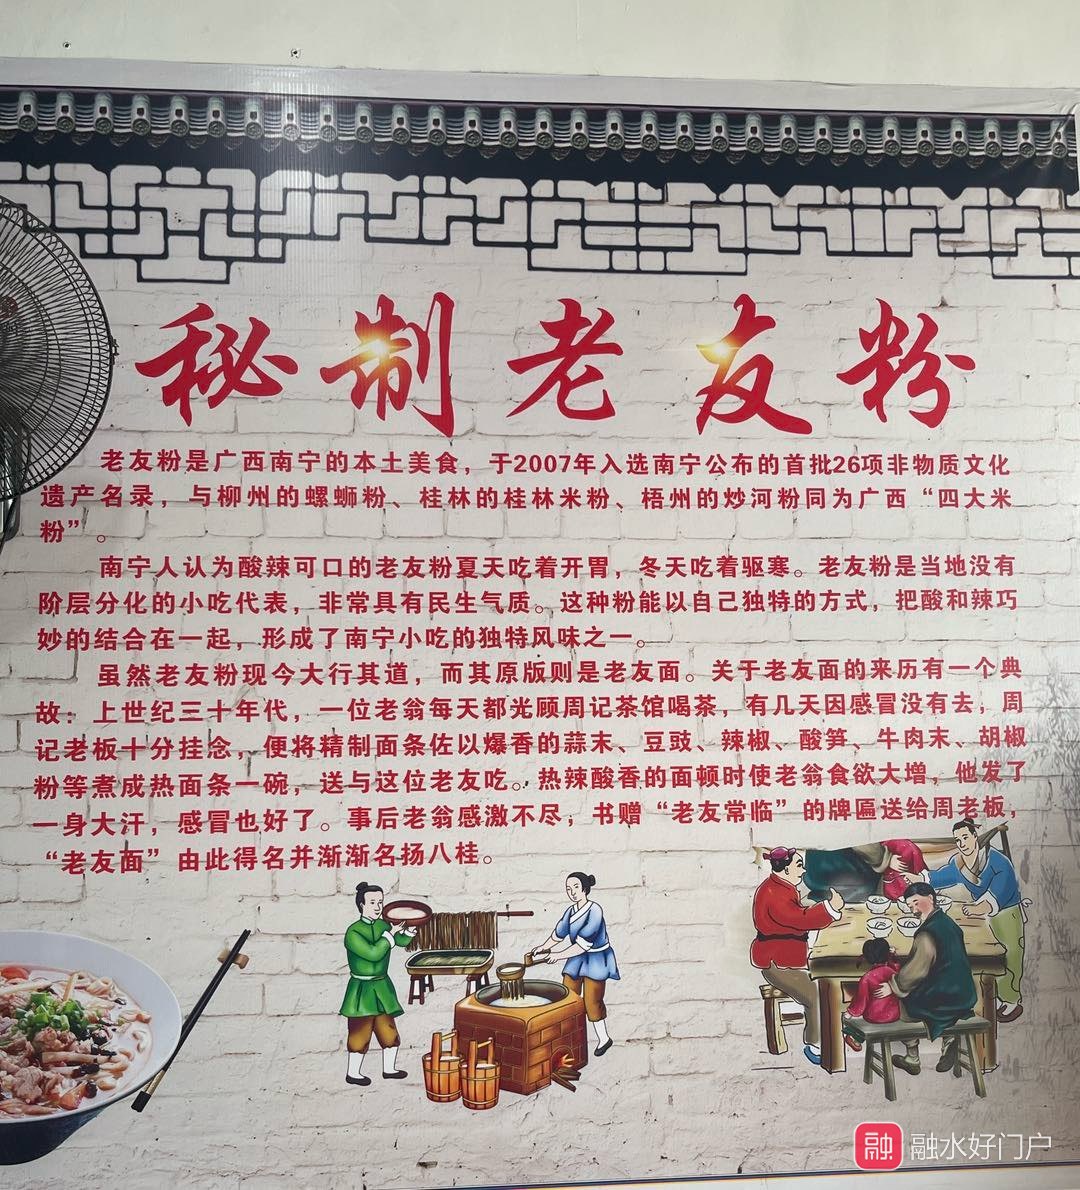 秘制老友粉
老友粉是广西南宁的本土美食，于2007年入选南宁公布的首批26项非物质文化
遗产名录，与柳州的螺蛳粉、桂林的桂林米粉、梧州的炒河粉同为广西“四大米
粉”。
南宁人认为酸辣可口的老友粉夏天吃着开胃，冬天吃着驱寒。老友粉是当地没有
阶层分化的小吃代表，非常具有民生气质。这种粉能以自己独特的方式，把酸和辣巧
妙的结合在一起，形成了南宁小吃的独特风味之一。
虽然老友粉现今大行其道，而其原版则是老友面。关于老友面的来历有一个典
故：上世纪三十年代，一位老翁每天都光顾周记茶馆喝茶，有几天因感冒没有去，周
记老板十分挂念，便将精制面条佐以爆香的蒜末、豆豉、辣椒、酸笋、牛肉末、胡椒
粉等煮成热面条一碗，送与这位老友吃。热辣酸香的面顿时使老翁食欲大增，他发了
一身大汗，感冒也好了。事后老翁感激不尽，书赠“老友常临”的牌匾送给周老板，
“老友面”由此得名并渐渐名扬八桂。
融 融水好门户